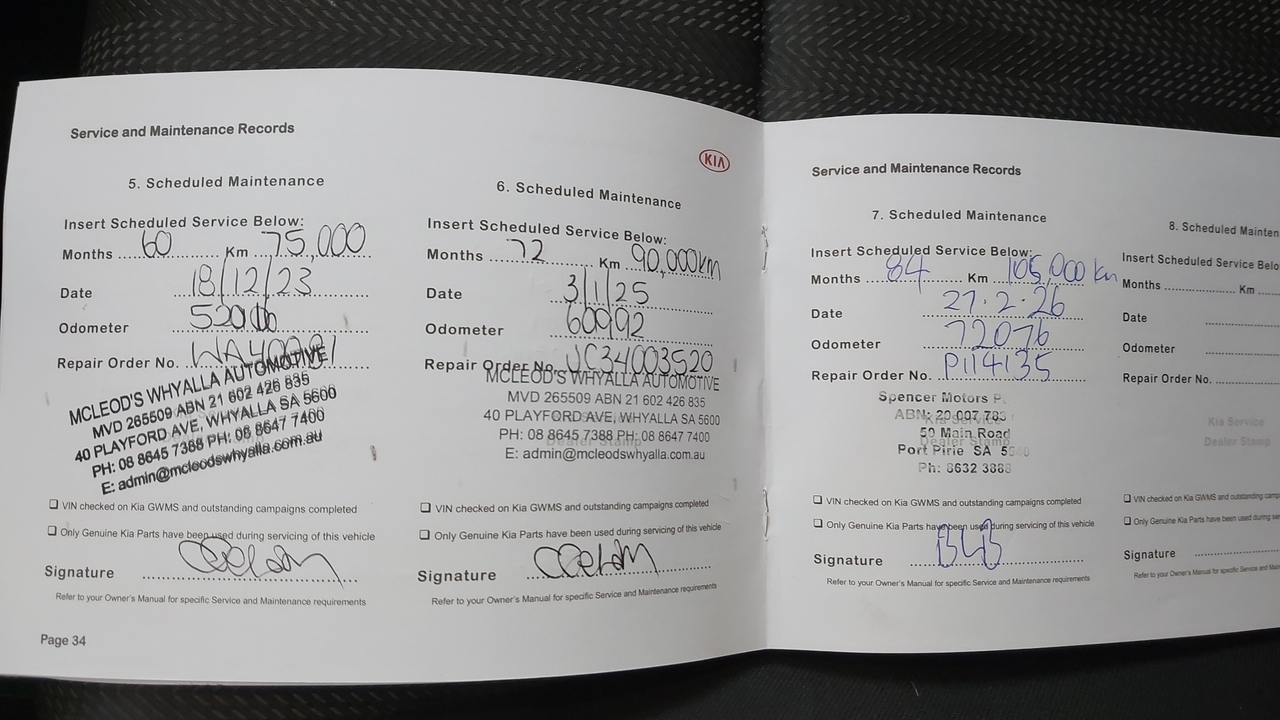 Service and Maintenance Records
KIA
5. Scheduled Maintenance
Insert Scheduled Service Below:
Months 60 Km 75,000
Date 18/12/23
Odometer
Repair Order No.
MCLEOD'S WHYALLA AUTOMOTIVE
MVD 265509 ABN 21 602 426 835
40 PLAYFORD AVE, WHYALLA SA 5600
PH: 08 8645 7388 PH: 08 8647 7400
E: admin@mcleodswhyalla.com.au
VIN checked on Kia GWMS and outstanding campaigns completed
Only Genuine Kia Parts have been used during servicing of this vehicle
Signature
Refer to your Owner's Manual for specific Service and Maintenance requirements
Page 34
6. Scheduled Maintenance
Insert Scheduled Service Below:
Months 72 Km 90,000km
Date 3/1/25
Odometer 60992
Repair Order No. UC34003520
MCLEOD'S WHYALLA AUTOMOTIVE
MVD 265509 ABN 21 602 426 835
40 PLAYFORD AVE, WHYALLA SA 5600
PH: 08 8645 7388 PH: 08 8647 7400
Dealer Stamp
E: admin@mcleodswhyalla.com.au
VIN checked on Kia GWMS and outstanding campaigns completed
Only Genuine Kia Parts have been used during servicing of this vehicle
Signature
Refer to your Owner's Manual for specific Service and Maintenance requirements
Service and Maintenance Records
7. Scheduled Maintenance
Insert Scheduled Service Below:
Months 84 Km 105,000 km
Date 27.2.26
Odometer 72076
Repair Order No. P114135
Spencer Motors P.
ABN: 20 007 783
Kia Service
50 Main Road
Dealer Stamp
Port Pirie SA 5540
Ph: 8632 3888
VIN checked on Kia GWMS and outstanding campaigns completed
Only Genuine Kia Parts have been used during servicing of this vehicle
Signature
Refer to your Owner's Manual for specific Service and Maintenance requirements
8. Scheduled Mainten
Insert Scheduled Service Belo
Months Km
Date
Odometer
Repair Order No.
Kia Service
Dealer Stamp
VIN checked on Kia GWMS and outstanding
Only Genuine Kia Parts have been used during
Signature
Refer to your Owner's Manual for specific Service and